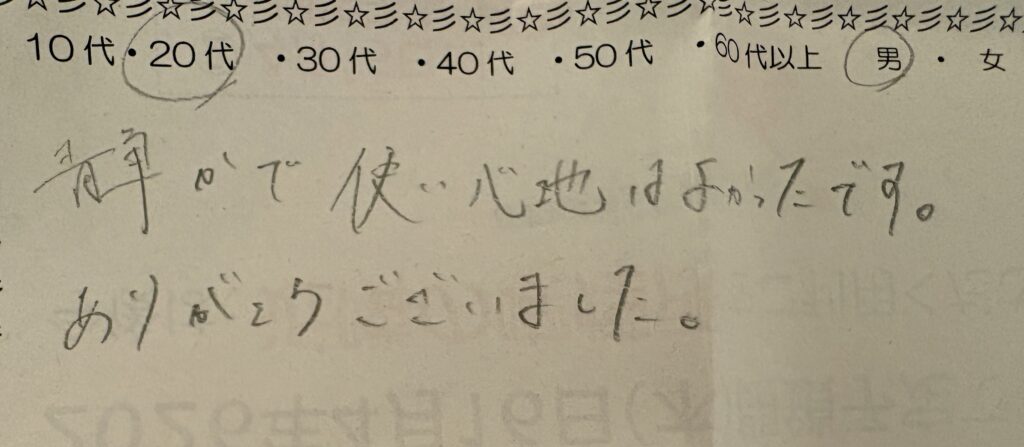 ☆彡☆彡☆彡☆彡☆彡☆彡☆彡☆彡☆彡☆彡☆彡☆彡☆彡☆彡☆彡☆彡☆
10代・20代・30代・40代・50代・60代以上 男・女
静かで使い心地はよかったです。
ありがとうございました。